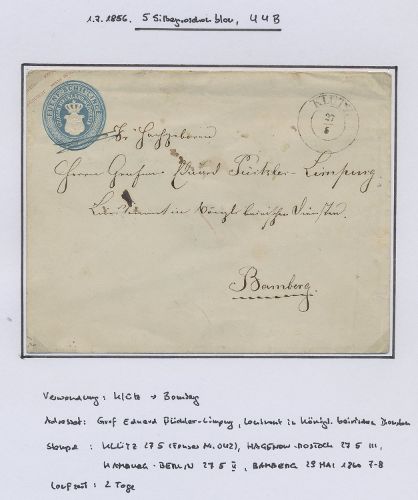 1.7.1856. 5 Silbergroschen blau, U 4 B
KLÜTZ
27
5
Sr. Hochgeboren
Herrn Grafen Eduard Pückler-Limpurg.
Lieutenant in Königl. bairischen Diensten.
Bamberg.
Verwendung: Klütz → Bamberg
Adressat: Graf Eduard Pückler-Limpurg, Leutnant in Königl. bairischen Diensten
Stempel: KLÜTZ 27 5 HAGENOW-ROSTOCK 27 5 III,
HAMBURG-BERLIN 27 5 II, BAMBERG 29 MAI 1860 7-8
Laufzeit: 2 Tage